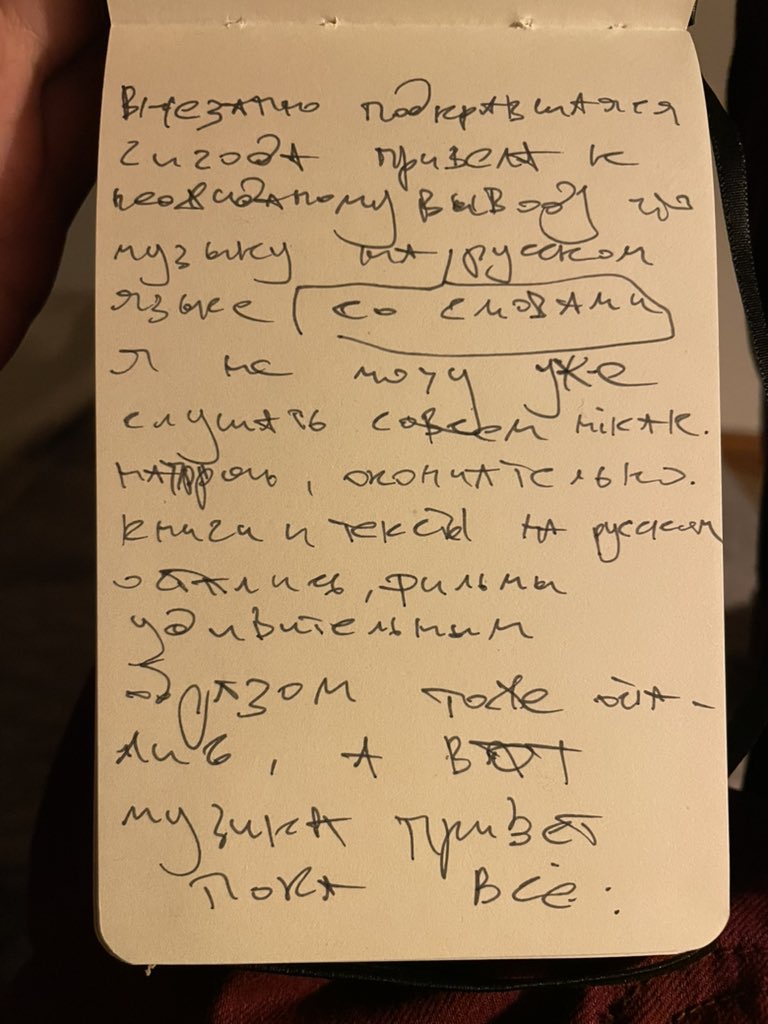 Внезапно подкравшаяся
2 и года привела к
неожиданному выводу что
музыку на русском
языке (со словами
я не могу уже
слушать совсем никак.
напрочь, окончательно.
книги и тексты на русском
остались, фильмы
удивительным
образом тоже оста-
лись, а вот
музыка привет
пока всё: